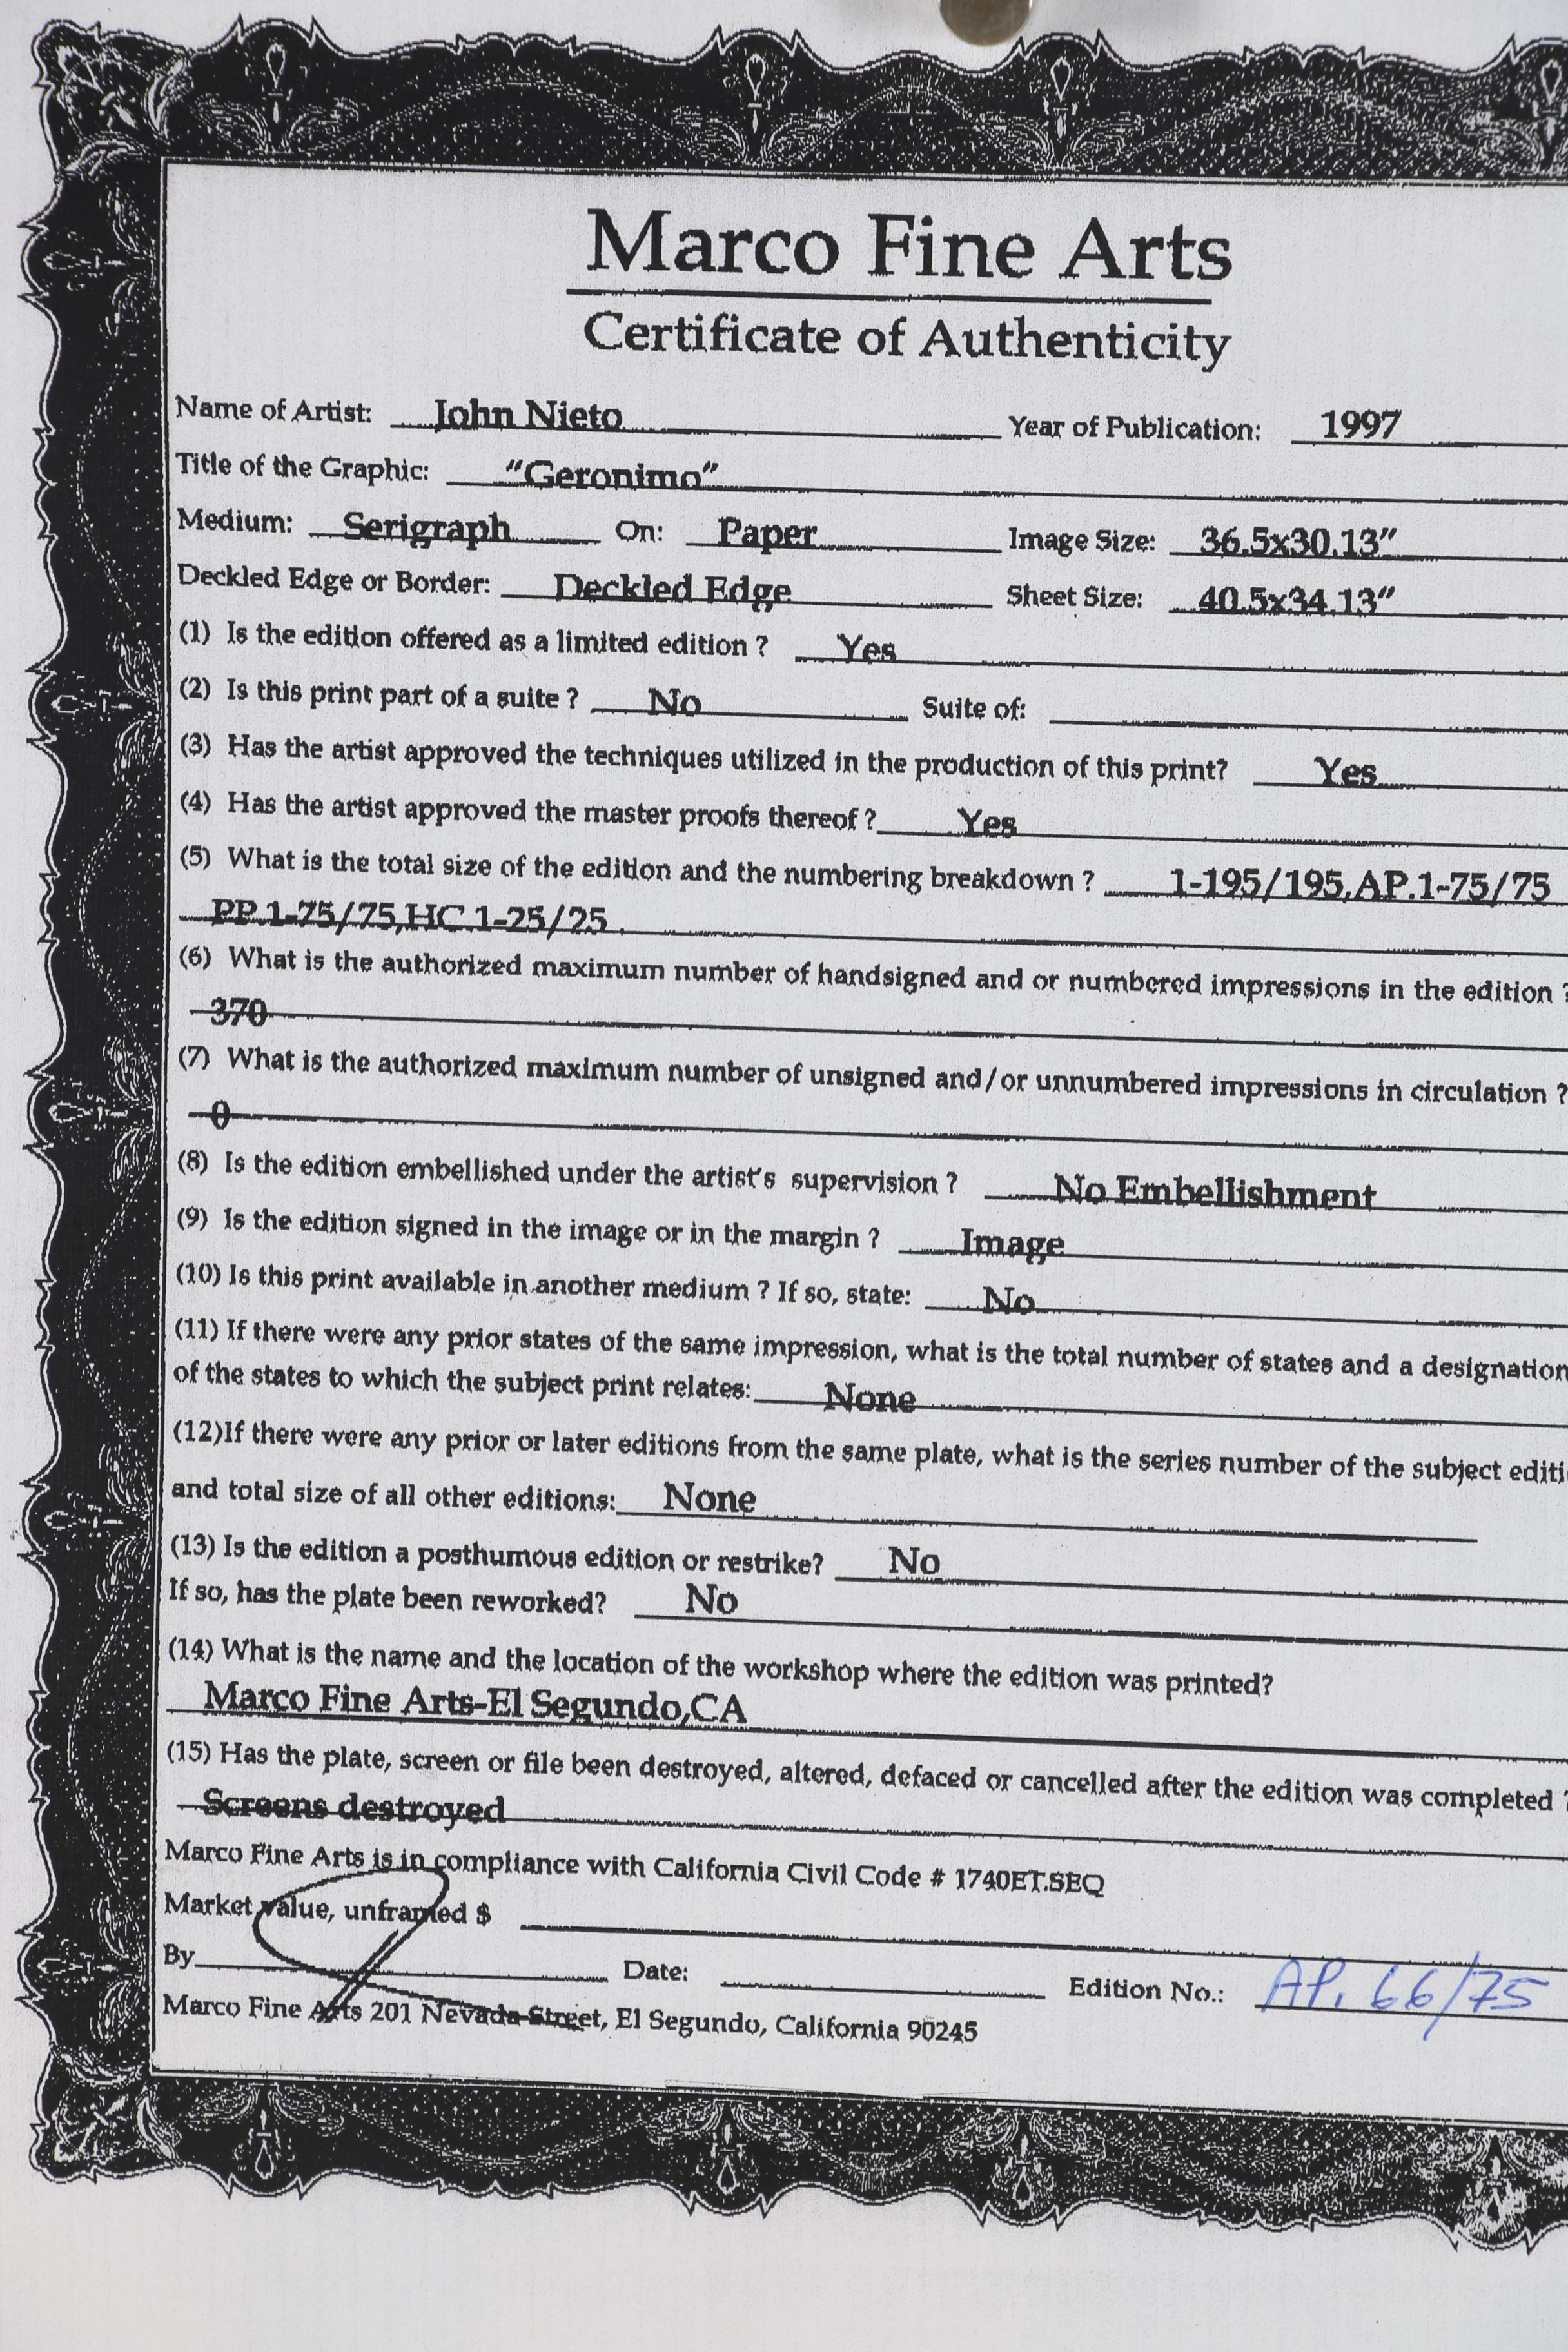 Marco Fine Arts
Certificate of Authenticity
Name of Artist: John Nieto Year of Publication: 1997
Title of the Graphic: "Geronimo"
Medium: Serigraph On: Paper Image Size: 36.5x30.13"
Deckled Edge or Border: Deckled Edge Sheet Size: 40.5x34.13"
(1) Is the edition offered as a limited edition ? Yes
(2) Is this print part of a suite ? No Suite of:
(3) Has the artist approved the techniques utilized in the production of this print? Yes
(4) Has the artist approved the master proofs thereof ? Yes
(5) What is the total size of the edition and the numbering breakdown ? 1-195/195,AP.1-75/75
PP.1-75/75,HC.1-25/25
(6) What is the authorized maximum number of handsigned and or numbered impressions in the edition ?
370
(7) What is the authorized maximum number of unsigned and/or unnumbered impressions in circulation ?
0
(8) Is the edition embellished under the artist's supervision ? No Embellishment
(9) Is the edition signed in the image or in the margin ? Image
(10) Is this print available in another medium ? If so, state: No
(11) If there were any prior states of the same impression, what is the total number of states and a designation
of the states to which the subject print relates: None
(12)If there were any prior or later editions from the same plate, what is the series number of the subject editi
and total size of all other editions: None
(13) Is the edition a posthumous edition or restrike? No
If so, has the plate been reworked? No
(14) What is the name and the location of the workshop where the edition was printed?
Marco Fine Arts-El Segundo,CA
(15) Has the plate, screen or file been destroyed, altered, defaced or cancelled after the edition was completed ?
Screens destroyed
Marco Fine Arts is in compliance with California Civil Code # 1740ET.SEQ
Market value, unframed $
By Date: Edition No.: AP. 66/75
Marco Fine Arts 201 Nevada Street, El Segundo, California 90245